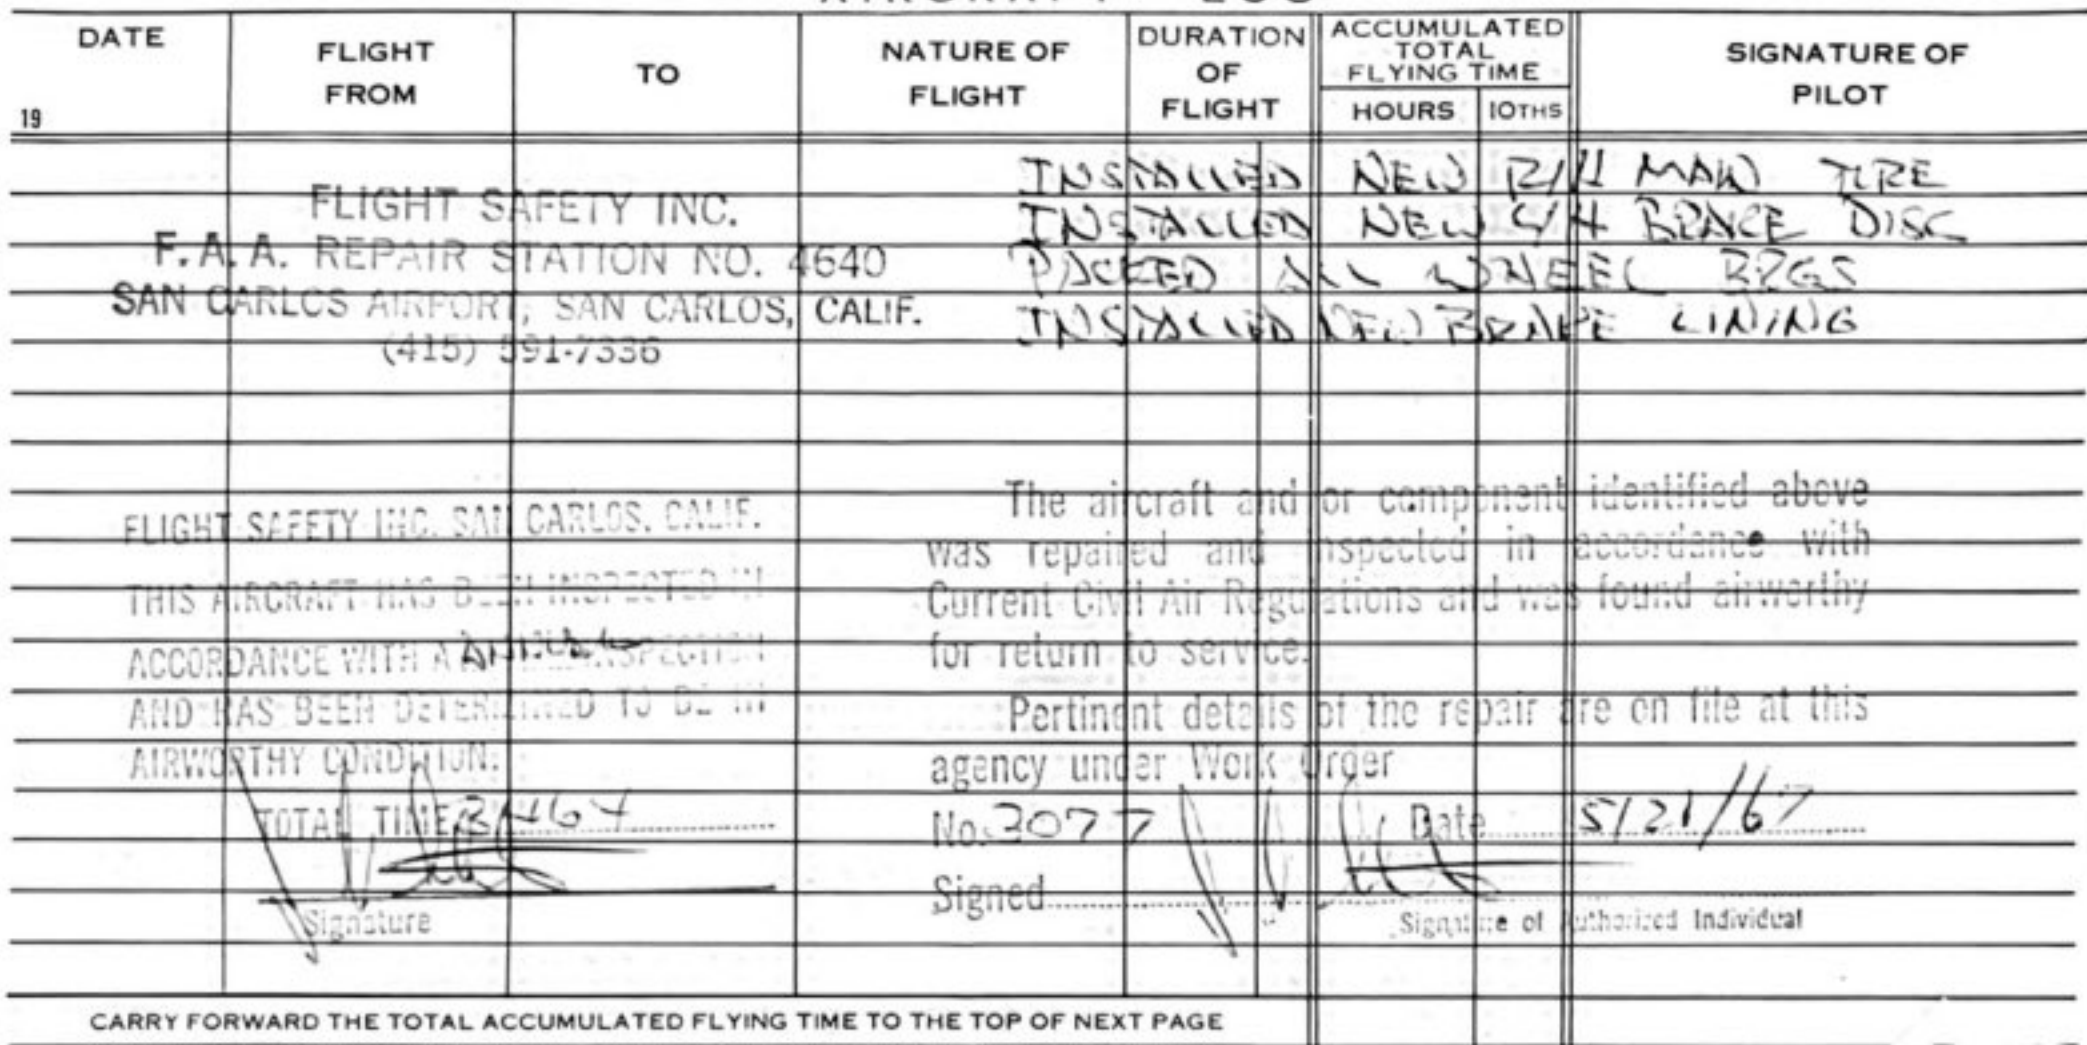 AIRCRAFT LOG
DATE
19
FLIGHT
FROM
TO
NATURE OF
FLIGHT
DURATION
OF
FLIGHT
ACCUMULATED
TOTAL
FLYING TIME
HOURS 10THS
SIGNATURE OF
PILOT
FLIGHT SAFETY INC.
F.A.A. REPAIR STATION NO. 4640
SAN CARLOS AIRPORT, SAN CARLOS, CALIF.
(415) 591-7336
INSTALLED NEW R/H MAIN TIRE
INSTALLED NEW L/H BRAKE DISC
PACKED ALL WHEEL BRGS
INSTALLED NEW BRAKE LINING
FLIGHT SAFETY INC. SAN CARLOS, CALIF.
THIS AIRCRAFT HAS BEEN INSPECTED IN
ACCORDANCE WITH A ANNUAL INSPECTION
AND HAS BEEN DETERMINED TO BE IN
AIRWORTHY CONDITION.
TOTAL TIME
Signature
The aircraft and or component identified above
was repaired and inspected in accordance with
Current Civil Air Regulations and was found airworthy
for return to service.
Pertinent details of the repair are on file at this
agency under Work Order
No. 3077 Date 5/21/67
Signed
Signature of Authorized Individual
CARRY FORWARD THE TOTAL ACCUMULATED FLYING TIME TO THE TOP OF NEXT PAGE